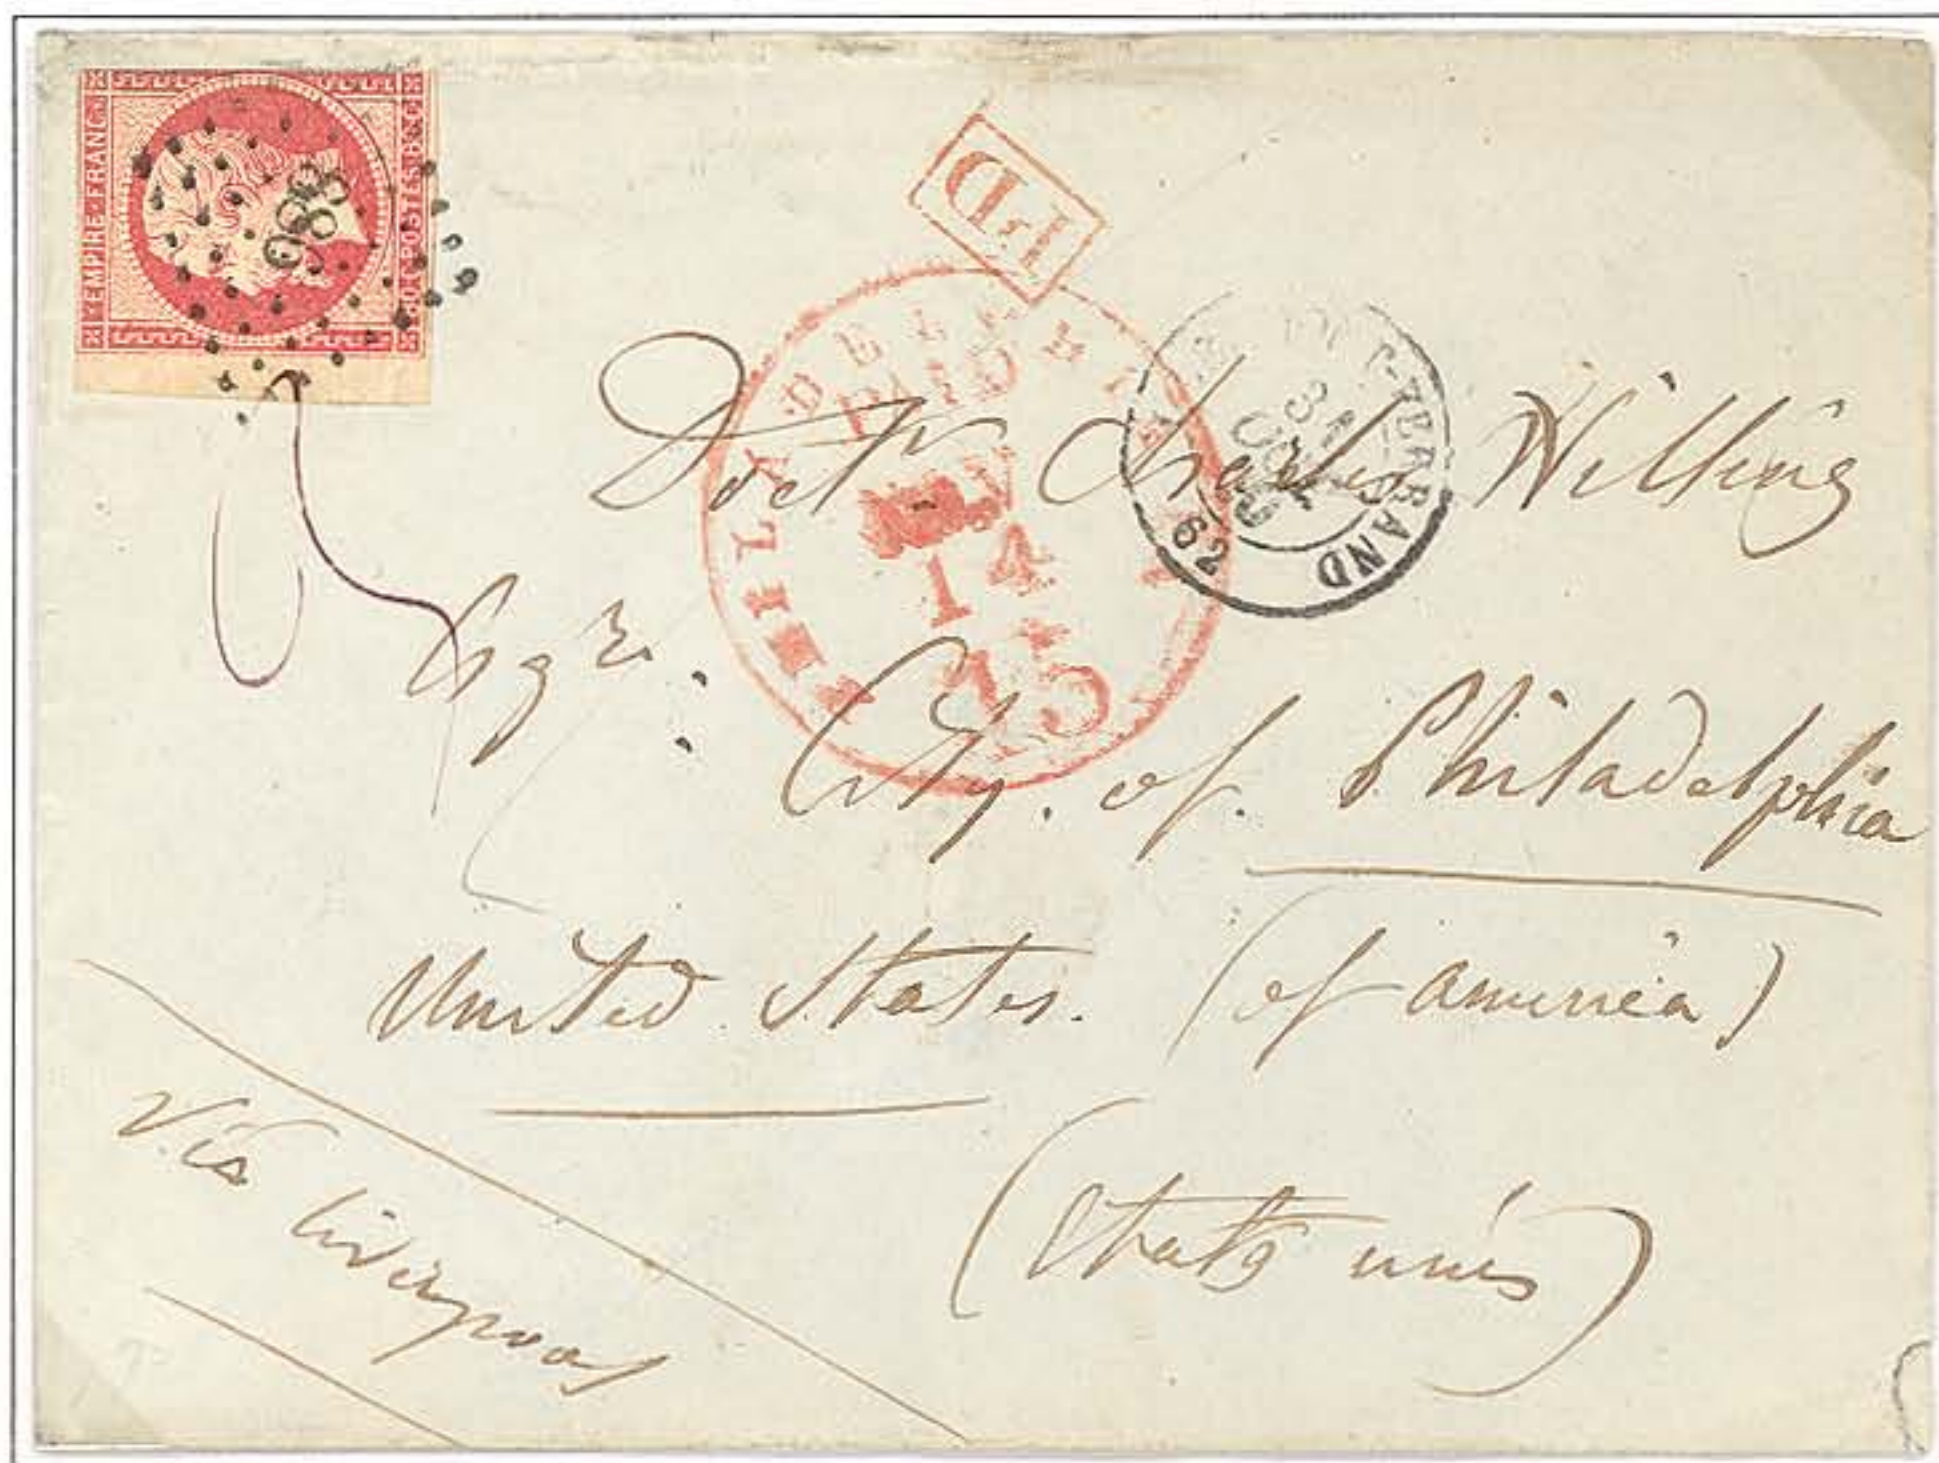 EMPIRE FRANC.
80 C POSTES 80 C
983
PD
PHILADELPHIA
PAID
14
15
T-FERRAND
62
Doctr. Charles Willing
Esqre.
City. of. Philadelphia
United States. (of america)
(Etats unis)
Via Liverpool